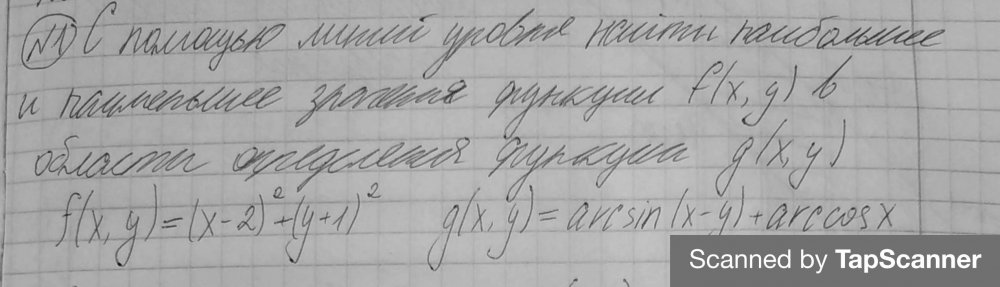 №1 С помощью линий уровня найти наибольшее
и наименьшее значения функции f(x, y) в
области определения функции g(x, y)
f(x, y) = (x-2)² + (y+1)² g(x, y) = arcsin(x-y) + arccosx
Scanned by TapScanner